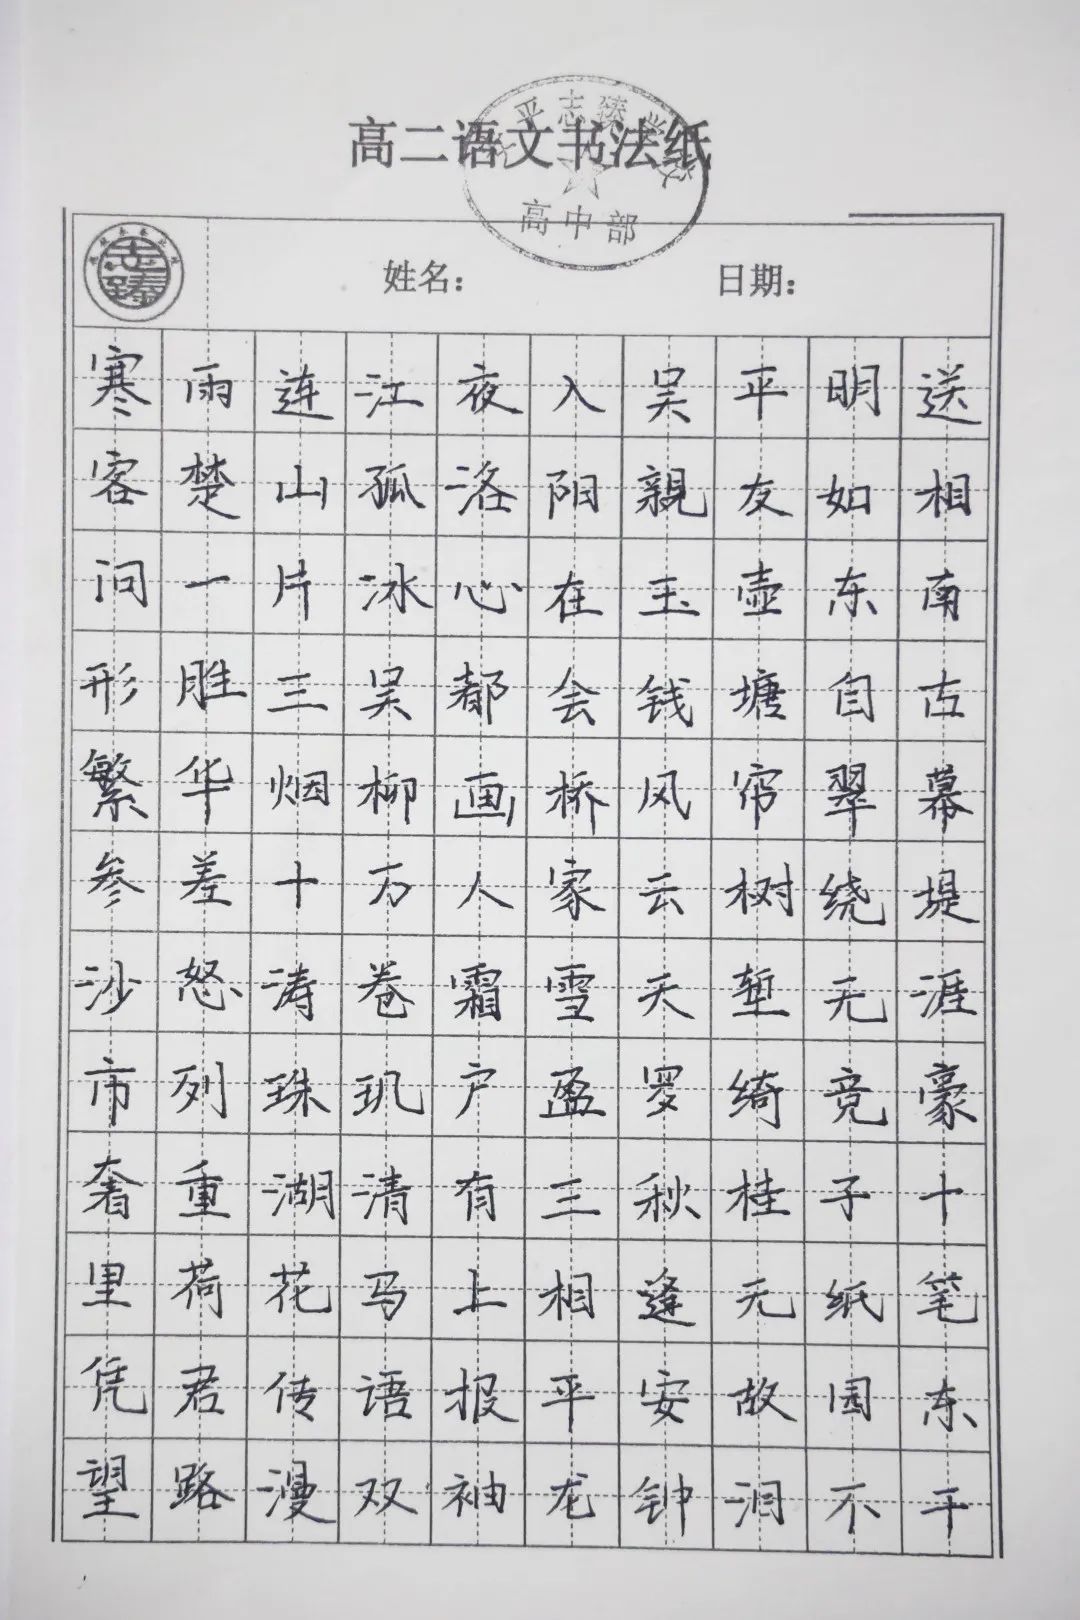 高二语文书法纸
平志臻学校
高中部
志臻
姓名：
日期：
寒雨连江夜入吴平明送
客楚山孤洛阳親友如相
问一片冰心在玉壶东南
形胜三吴都会钱塘自古
繁华烟柳画桥风帘翠幕
参差十万人家云树绕堤
沙怒涛卷霜雪天堑无涯
市列珠玑户盈罗绮竞豪
奢重湖清有三秋桂子十
里荷花马上相逢无纸笔
凭君传语报平安故园东
望路漫双袖龙钟泪不干